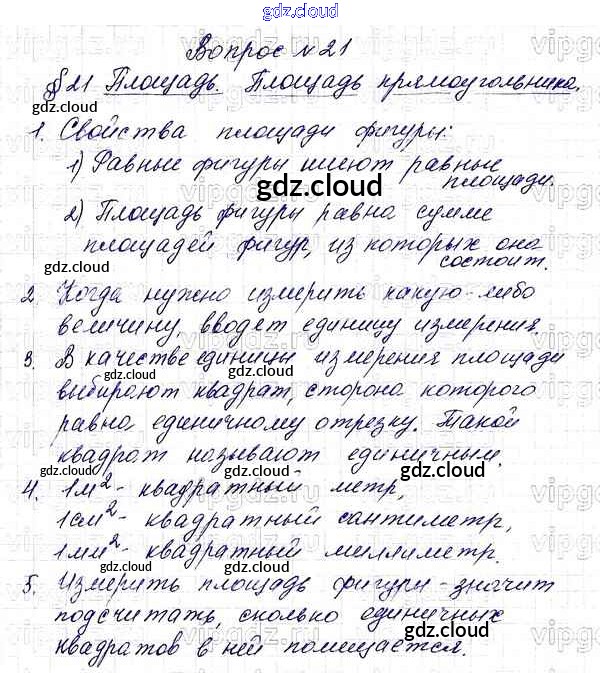 gdz.cloud
Вопрос №21
§21 Площадь. Площадь прямоугольника.
gdz.cloud
1. Свойства площади фигуры:
1) Равные фигуры имеют равные
площади.
gdz.cloud
2) Площадь фигуры равна сумме
площадей фигур, из которых она
состоит.
gdz.cloud
2. Когда нужно измерить какую-либо
величину, вводят единицу измерения.
gdz.cloud
3. В качестве единицы измерения площади
gdz.cloud
выбирают квадрат, сторона которого
равна единичному отрезку. Такой
квадрат называют единичным.
gdz.cloud
4. 1м² - квадратный метр,
1см² - квадратный сантиметр,
1мм² - квадратный миллиметр.
gdz.cloud
5. Измерить площадь фигуры - значит
подсчитать, сколько единичных
gdz.cloud
квадратов в ней помещается.